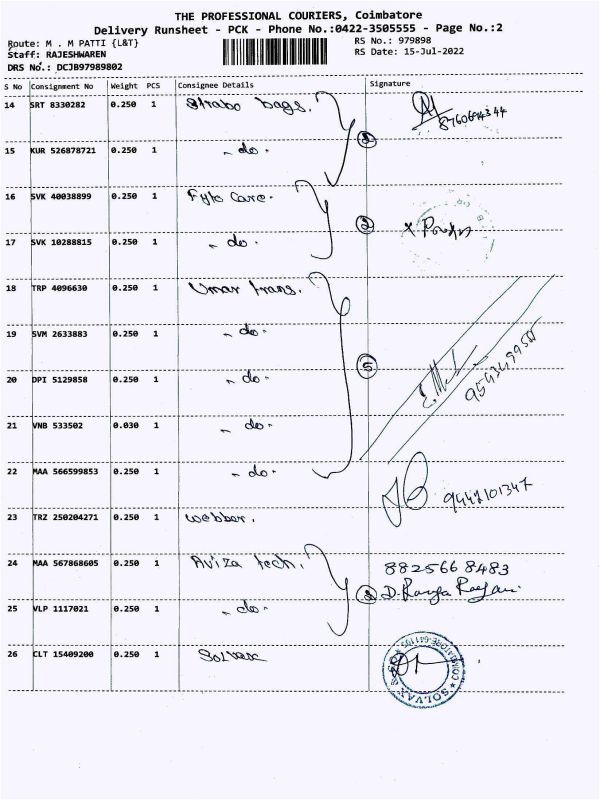 THE PROFESSIONAL COURIERS, Coimbatore
Delivery Runsheet - PCK - Phone No.:0422-3505555 - Page No.:2
Route: M . M PATTI {L&T} RS No.: 979898
Staff: RAJESHWAREN RS Date: 15-Jul-2022
DRS No.: DCJB97989802
S No Consignment No Weight PCS Consignee Details Signature
14 SRT 8330282 0.250 1 Strabo bags.
15 KUR 526878721 0.250 1 - do -
16 SVK 40038899 0.250 1 Fyto Care.
17 SVK 10288815 0.250 1 - do - 2
18 TRP 4096630 0.250 1 Umar trans.
19 SVM 2633883 0.250 1 - do -
20 DPI 5129858 0.250 1 - do - 5
21 VNB 533502 0.030 1 - do -
22 MAA 566599853 0.250 1 - do - 9442101347
23 TRZ 250204271 0.250 1 Webber.
24 MAA 567868605 0.250 1 Aviza tech. 8825668483
25 VLP 1117021 0.250 1 - do -
26 CLT 15409200 0.250 1 Solvax